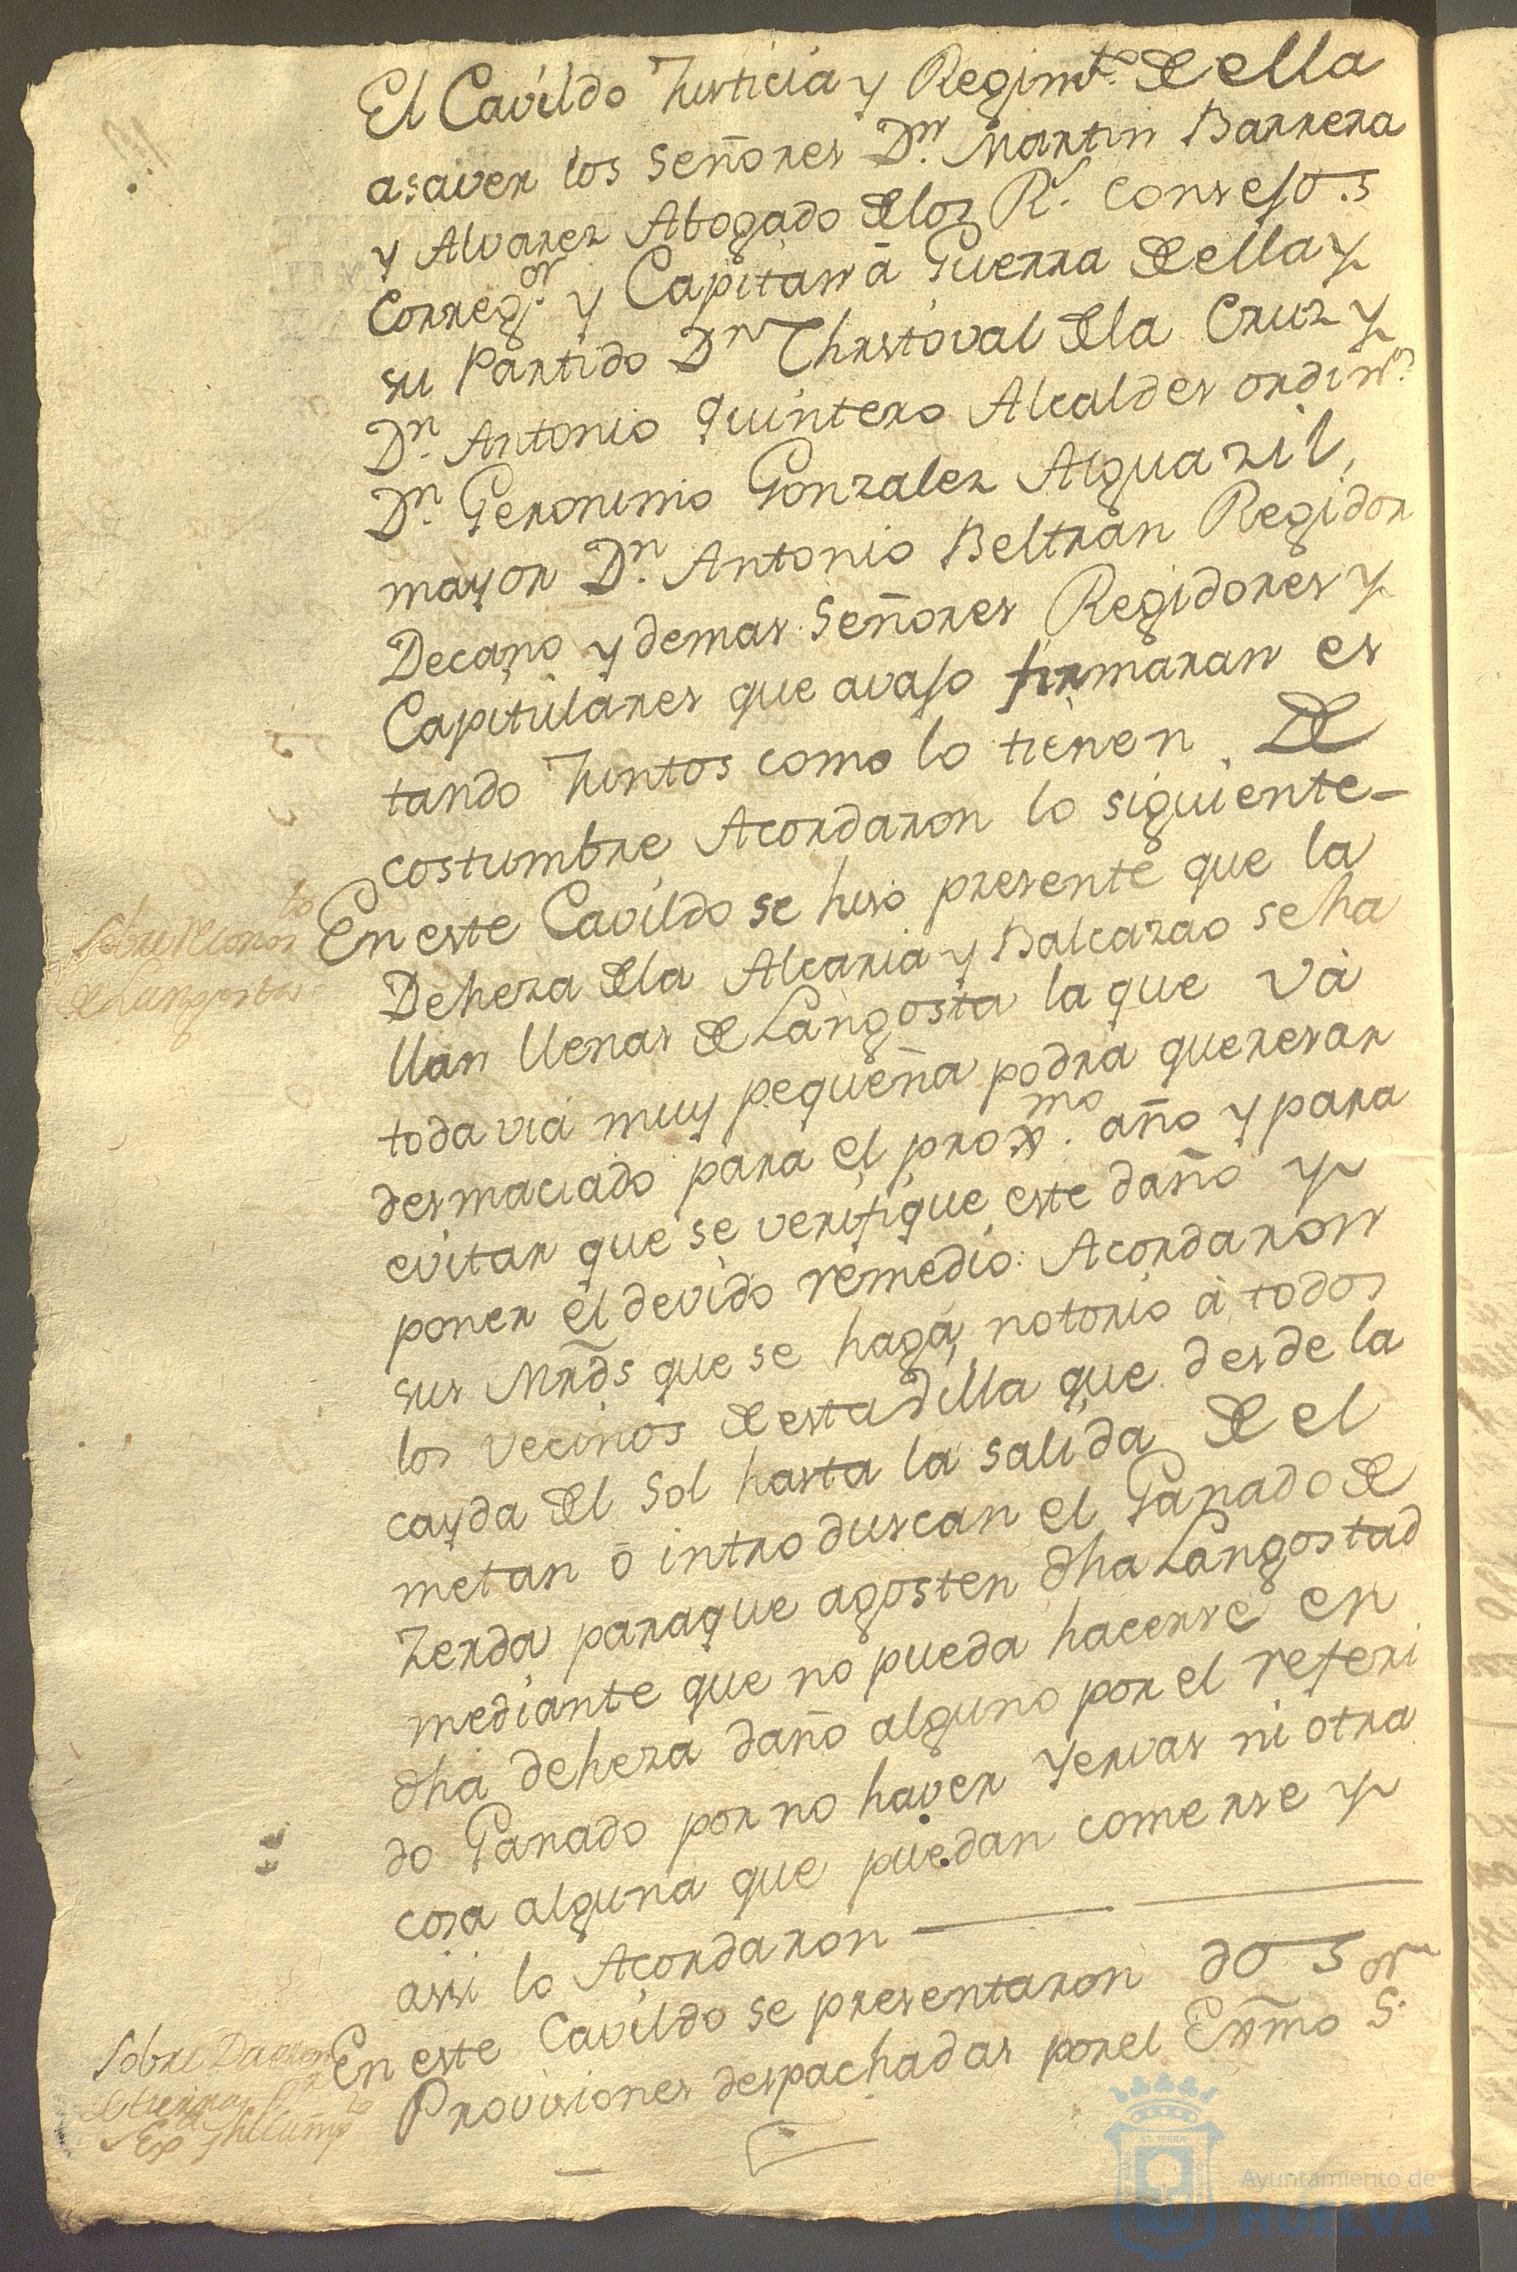 El Cavildo Justicia y Regimto. de ella
asaver los Señores Dn. Martin Barrera
y Alvarez Abogado de los Rs. Consejos
Corregor. y Capitan á Guerra de ella y
su Partido Dn Christoval de la Cruz y
Dn. Antonio Quintero Alcaldes ordins.
Dn. Geronimo Gonzalez Alguazil
mayor Dn. Antonio Beltran Regidor
Decano y demas Señores Regidores y
Capitulares que avajo firmaran es
tando Juntos como lo tienen de
costumbre Acordaron lo siguiente_
Sobre
de Langostas
En este Cavildo se hiso presente que la
Deheza de la Alcaria y Balcazao se ha
llan llenas de Langosta la que và
todavia muy pequeña podra queresar
desmaciado para el proxmo. año y para
evitar que se verifique este daño y
poner el devido remedio: Acordaron
sus Mrds que se haga notorio à todos
los vecinos de esta dilla que desde la
cayda del Sol hasta la salida de el
metan ō introduscan el Ganado de
Zerda paraque agosten dha Langosta d
mediante que no pueda hacerse en
dha deheza daño alguno por el referi
do Ganado por no haver Yervas ni otra
cosa alguna que puedan comerse y
assi lo Acordaron
Sobre Dacion
de tierra
En este Cavildo se presentaron dos
Provisiones despachadas por el Exmo Sor.
Ayuntamiento de
HUELVA